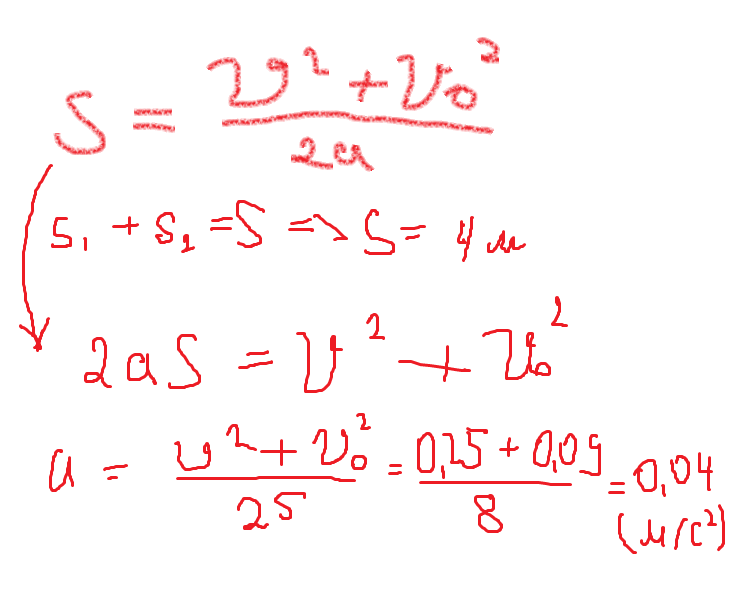 S = (υ² + υ₀²) / 2a
S₁ + S₂ = S => S = 4 м
2aS = υ² + υ₀²
a = (υ² + υ₀²) / 2S = (0,25 + 0,09) / 8 = 0,04 (м/с²)